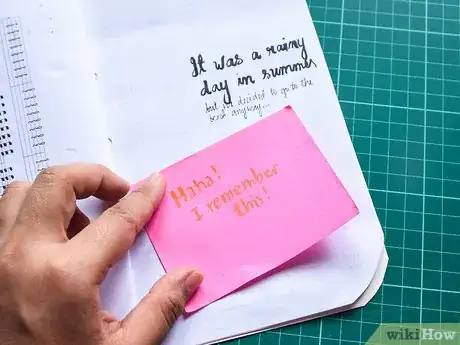 It was a rainy
day in summer
but I decided to go to the
beach anyway...
Haha!
I remember
this!
wikiHow